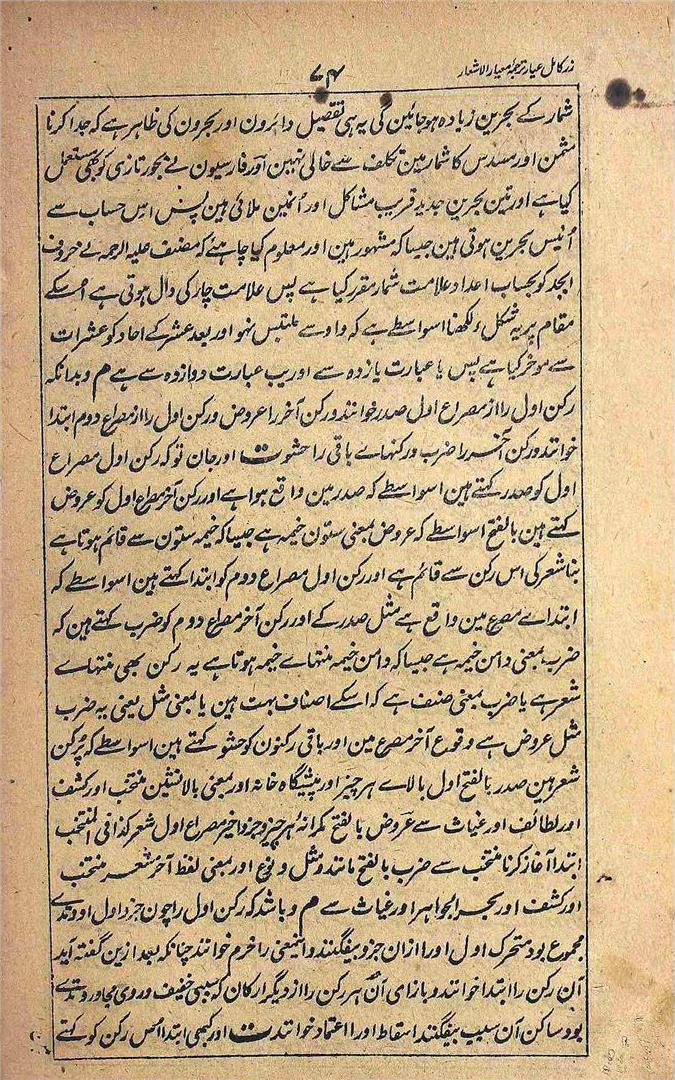 زر کامل عیار ترجمۂ معیار الاشعار
۷۴
شمار کے بحرین زیادہ ہوجائین گی یہ ہی تفصیل دائرون اور بحرون کی ظاہر ہے کہ جدا کرنا
مثمن اور مسدس کا شمار مین تکلف سے خالی نہین اور فارسیون نے بحور تازی کو بھی مستعمل
کیا ہے اور تین بحرین جدید قریب مشاکل اور اُنہین ملائی ہین پس اس حساب سے
اُنیس بحرین ہوتی ہین جیسا کہ مشہور ہین اور معلوم کیا چاہئے کہ مصنف علیہ الرحمہ نے حروف
ابجد کو بحساب اعداد علامت شمار مقرر کیا ہے پس علامت چار کی دال ہوتی ہے اُسکے
مقام پر یہ شکل ء لکھنا اسواسطے ہے کہ واو سے ملتبس نہو اور بعد عشر کے احاد کو عشرات
سے موخر کیا ہے پس یا عبارت یازدہ سے اور یب عبارت دوازدہ سے ہے م و بدانکہ
رکن اول را از مصراع اول صدر خوانند و رکن آخر را عروض و رکن اول را از مصراع دوم ابتدا
خوانند و رکن آخر را ضرب و رکنہاے باقی را حشو ت اور جان تو کہ رکن اول مصراع
اول کو صدر کہتے ہین اسواسطے کہ صدر مین واقع ہوا ہے اور رکن آخر مصراع اول کو عروض
کہتے ہین بالفتح اسواسطے کہ عروض بمعنی ستون خیمہ ہے جیسا کہ خیمہ ستون سے قائم ہوتا ہے
بنا شعر کی اس رکن سے قائم ہے اور رکن اول مصراع دوم کو ابتدا کہتے ہین اسواسطے کہ
ابتداے مصرع مین واقع ہے مثل صدر کے اور رکن آخر مصراع دوم کو ضرب کہتے ہین کہ
ضرب بمعنی دامن خیمہ ہے جیسا کہ دامن خیمہ منتہاے خیمہ ہوتا ہے یہ رکن بھی منتہاے
شعر ہے یا ضرب بمعنی صنف ہے کہ اسکے اصناف بہت ہین یا بمعنی مثل یعنی یہ ضرب
مثل عروض ہے وقوع آخر مصرع مین اور باقی رکنون کو حشو کہتے ہین اسواسطے کہ پُرکن
شعر ہین صدر بالفتح اول بالاے ہر چیز اور پیشگاہ خانہ اور بمعنی بالانشین منتخب اور کشف
اور لطائف اور غیاث سے عروض بالفتح کرانۂ ہر چیز و جزو اخیر مصراع اول شعر کذا فی المنتخب
ابتدا آغاز کرنا منتخب سے ضرب بالفتح مانند و مثل و نوع اور بمعنی لفظ آخر شعر منتخب
اور کشف اور بحر الجواہر اور غیاث سے م و باشد کہ رکن اول را چون جزو اول او وتدے
مجموع بود متحرک اول او را ازان جزو بیفگنند و اینمعنی را خرم خوانند چنانکہ بعد ازین گفتہ آید
آن رکن را ابتدا خوانند و بازای آن ہر رکن را از دیگر ارکان کہ سببی خفیف در وی مجاور وتدے
بود ساکن آن سبب بیفگنند اسقاط او را اعتماد خوانند ت اور کبھی ابتدا اُس رکن کو کہتے